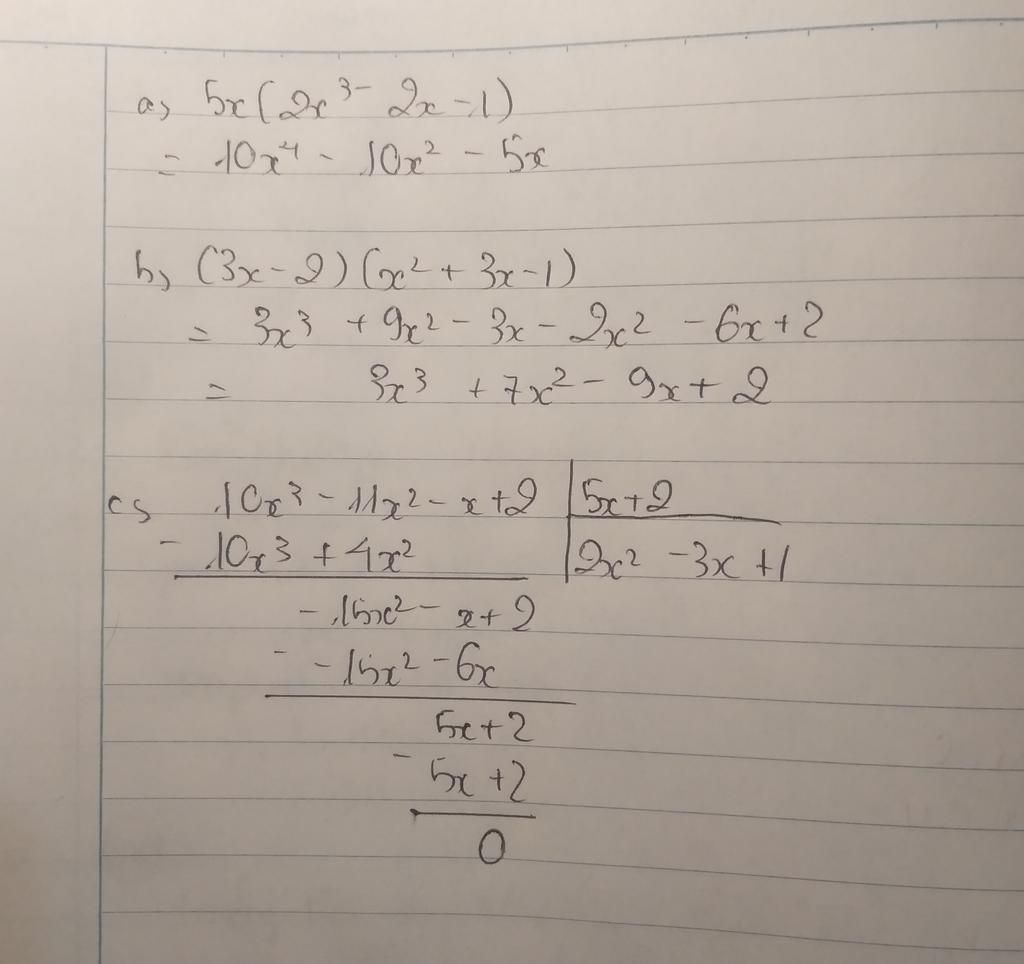 a, 5x(2x³ - 2x - 1)
= 10x⁴ - 10x² - 5x
b, (3x - 2)(x² + 3x - 1)
= 3x³ + 9x² - 3x - 2x² - 6x + 2
= 3x³ + 7x² - 9x + 2
c, 10x³ - 11x² - x + 2 | 5x + 2
- 10x³ + 4x² | 2x² - 3x + 1
- 15x² - x + 2
- - 15x² - 6x
5x + 2
- 5x + 2
0